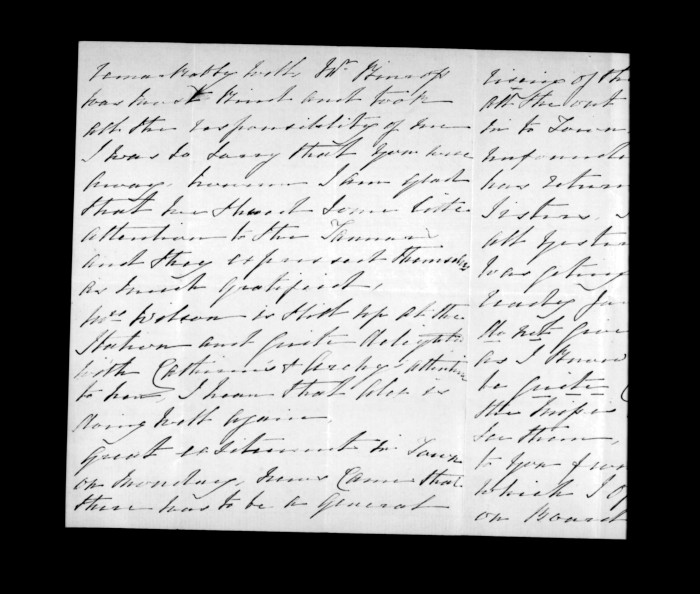 remarkably well, Mr
was most kind and took
all the responsibility of me
I was so sorry that you were
away, however I am glad
that we showd some little
attention to the
and they expressed themselves
as much gratified,
Mrs Wilson is still up at the
Station and quite delighted
with Catherine's & Archy's attention
to her, I hear that Alex is
doing well again.
Great excitement in Town
on Monday, news came that
there was to be a General
rising of the
all the out
in to Town
unfounded
has return
Sisters,
all yester
was going
ready
do not give
as I know
be quite
the
see them,
to you from
which I
on Board